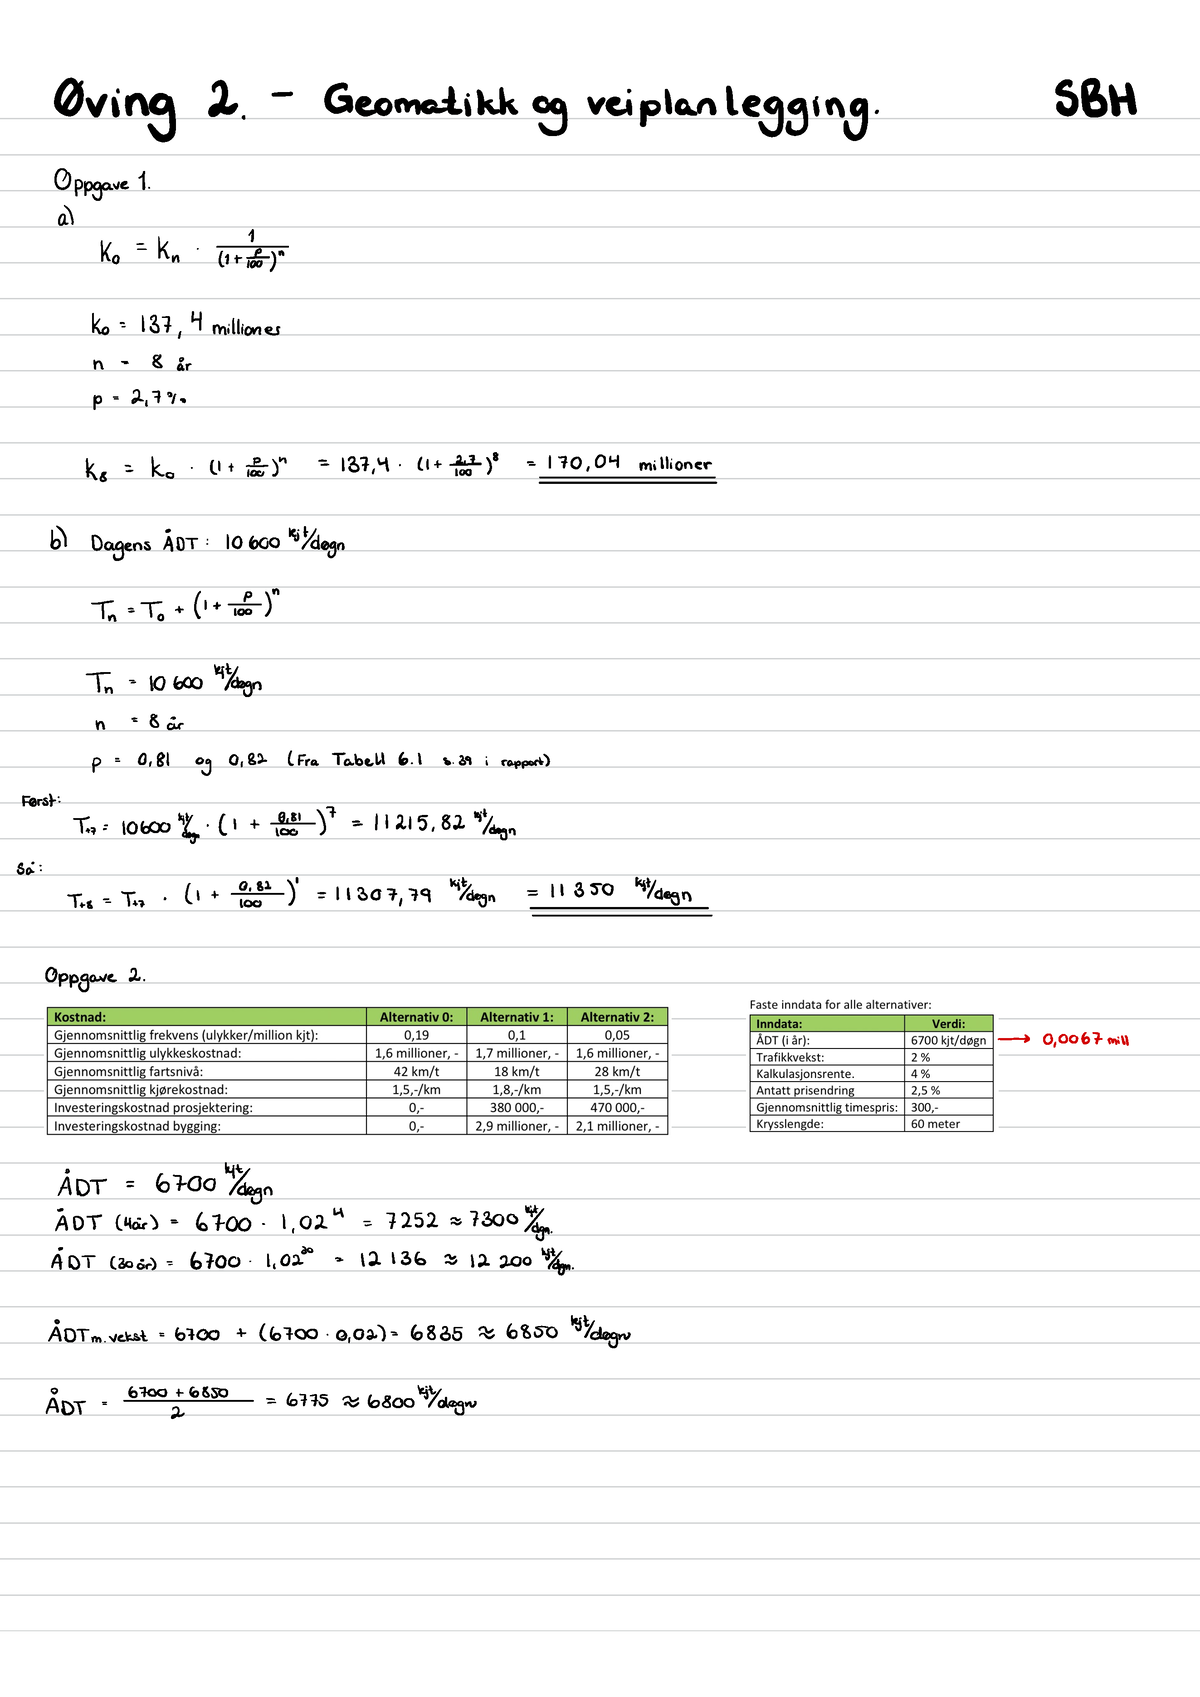 Øving 2. - Geomatikk og veiplanlegging. SBH
Oppgave 1.
a)
K₀ = Kₙ · 1/(1 + p/100)ⁿ
K₀ = 137,4 millioner
n = 8 år
p = 2,7 %
K₈ = K₀ · (1 + p/100)ⁿ = 137,4 · (1 + 2,7/100)⁸ = 170,04 millioner
b) Dagens ÅDT: 10 600 kjt/døgn
Tₙ = T₀ + (1 + p/100)ⁿ
Tₙ = 10 600 kjt/døgn
n = 8 år
p = 0,81 og 0,82 (Fra Tabell 6.1 s. 39 i rapport)
Først:
T₊₇ = 10600 kjt/døgn · (1 + 0,81/100)⁷ = 11215,82 kjt/døgn
Så:
T₊₈ = T₊₇ · (1 + 0,82/100)¹ = 11307,79 kjt/døgn = 11 350 kjt/døgn
Oppgave 2.
Kostnad: Alternativ 0: Alternativ 1: Alternativ 2:
Gjennomsnittlig frekvens (ulykker/million kjt): 0,19 0,1 0,05
Gjennomsnittlig ulykkeskostnad: 1,6 millioner, - 1,7 millioner, - 1,6 millioner, -
Gjennomsnittlig fartsnivå: 42 km/t 18 km/t 28 km/t
Gjennomsnittlig kjørekostnad: 1,5,-/km 1,8,-/km 1,5,-/km
Investeringskostnad prosjektering: 0,- 380 000,- 470 000,-
Investeringskostnad bygging: 0,- 2,9 millioner, - 2,1 millioner, -
Faste inndata for alle alternativer:
Inndata: Verdi:
ÅDT (i år): 6700 kjt/døgn → 0,0067 mill
Trafikkvekst: 2 %
Kalkulasjonsrente. 4 %
Antatt prisendring 2,5 %
Gjennomsnittlig timespris: 300,-
Krysslengde: 60 meter
ÅDT = 6700 kjt/døgn
ÅDT (4år) = 6700 · 1,02⁴ = 7252 ≈ 7300 kjt/dgn.
ÅDT (30 år) = 6700 · 1,02³⁰ = 12 136 ≈ 12 200 kjt/dgn.
ÅDT m. vekst = 6700 + (6700 · 0,02) = 6835 ≈ 6850 kjt/døgn
ÅDT = (6700 + 6850)/2 = 6775 ≈ 6800 kjt/døgn